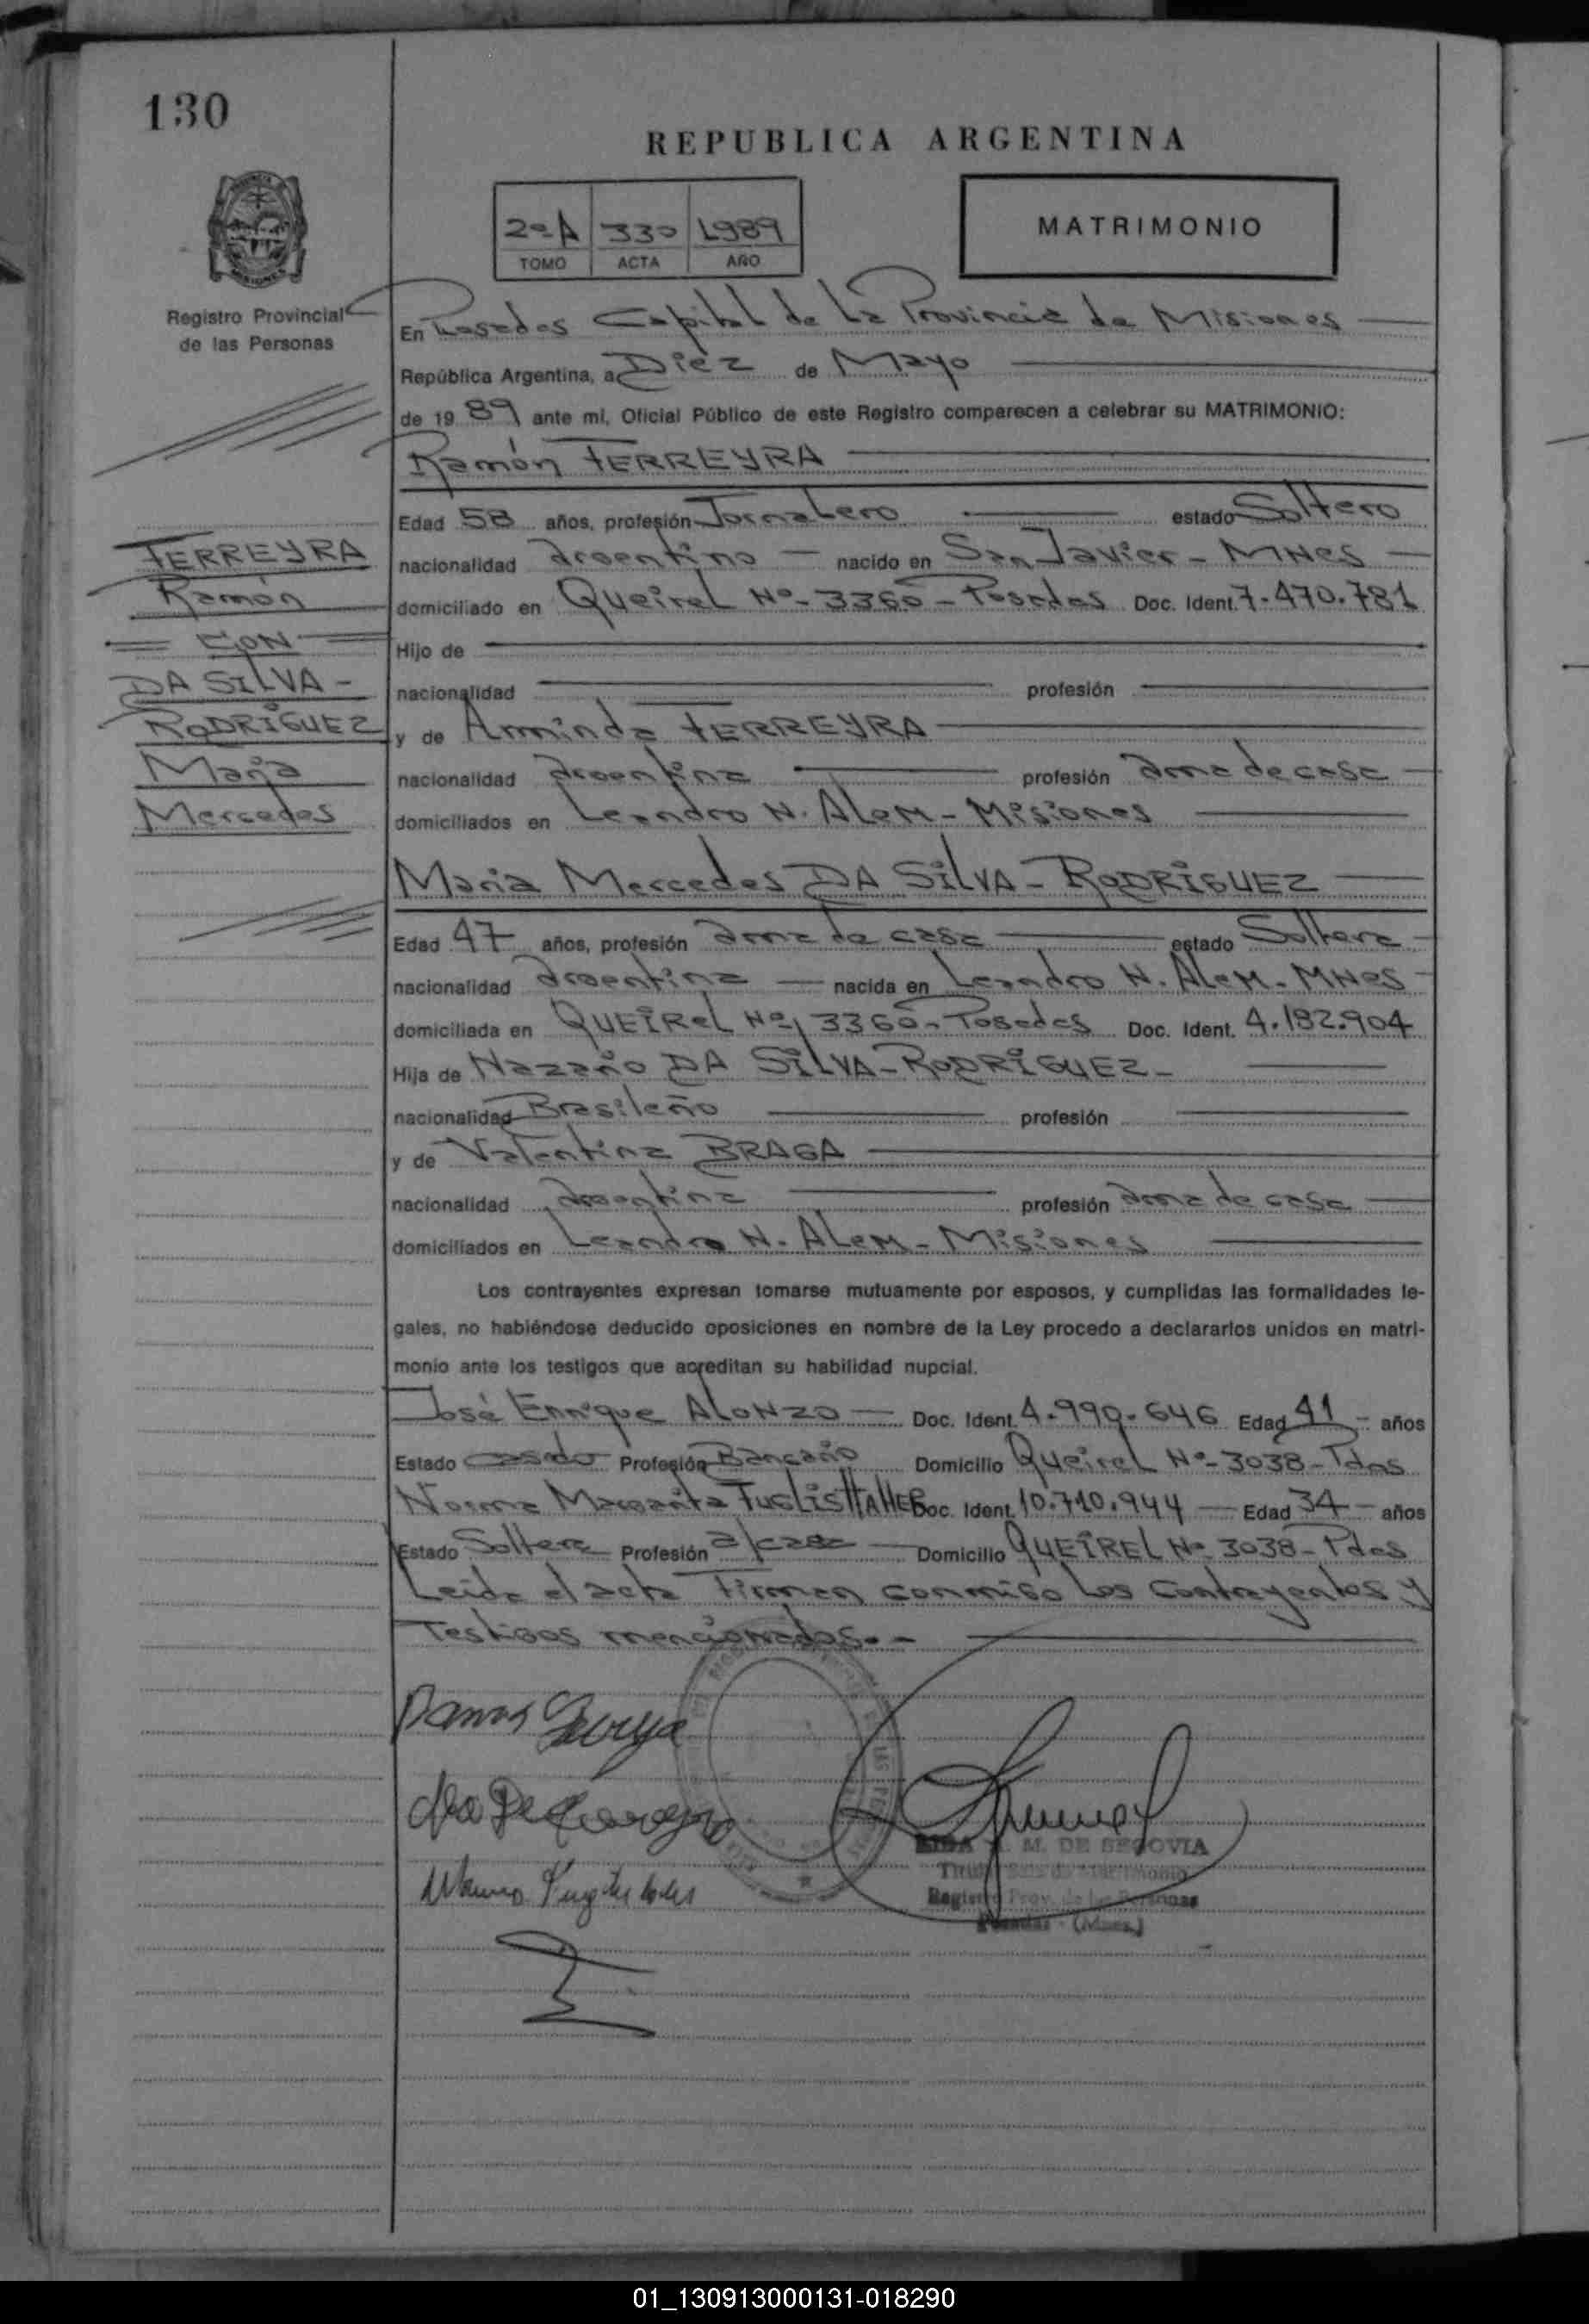 130
REPUBLICA ARGENTINA
2º A 330 1989
TOMO ACTA AÑO
MATRIMONIO
Registro Provincial
de las Personas
En Posadas Capital de La Provincia de Misiones
República Argentina, a Diez de Mayo
de 1989 ante mí, Oficial Público de este Registro comparecen a celebrar su MATRIMONIO:
Ramón FERREYRA
Edad 58 años, profesión Jornalero estado Soltero
nacionalidad argentino nacido en San Javier - MNes
domiciliado en Queirel Nº- 3360 - Posadas Doc. Ident. 7.470.781
Hijo de
nacionalidad profesión
y de Arminda FERREYRA
nacionalidad argentina profesión ama de casa
domiciliados en Leandro N. Alem - Misiones
FERREYRA
Ramón
CON
DA SILVA -
RODRIGUEZ
María
Mercedes
Maria Mercedes DA SILVA - RODRIGUEZ
Edad 47 años, profesión ama de casa estado Soltera
nacionalidad argentina nacida en Leandro N. Alem - MNes
domiciliada en QUEIRel Nº 3360 - Posadas Doc. Ident. 4.182.904
Hija de Nazario DA SILVA - RODRIGUEZ -
nacionalidad Brasileño profesión
y de Valentina BRAGA
nacionalidad argentina profesión ama de casa
domiciliados en Leandro N. Alem - Misiones
Los contrayentes expresan tomarse mutuamente por esposos, y cumplidas las formalidades le-
gales, no habiéndose deducido oposiciones en nombre de la Ley procedo a declararlos unidos en matri-
monio ante los testigos que acreditan su habilidad nupcial.
José Enrique ALONZO Doc. Ident. 4.990.646 Edad 41 - años
Estado casado Profesión Bancario Domicilio Queirel Nº- 3038 - Pdas
Norma Margarita FUGLISTTAHER Doc. Ident. 10.710.944 Edad 34 - años
Estado Soltera Profesión a/casa Domicilio QUEIREL Nº 3038 - Pdas
Leida el acta firman conmigo los contrayentes y
Testigos mencionados. -
M. DE SEGOVIA
Registro Prov. de las Personas
Posadas - (Mnes.)
01_130913000131-018290